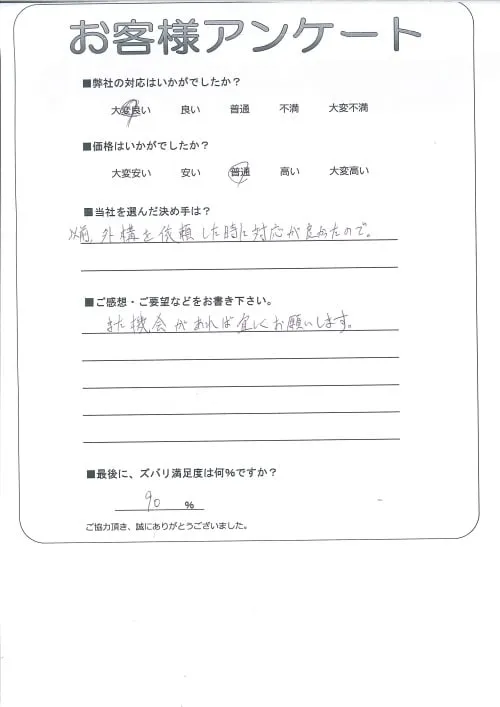 お客様アンケート
■弊社の対応はいかがでしたか？
大変良い 良い 普通 不満 大変不満
■価格はいかがでしたか？
大変安い 安い 普通 高い 大変高い
■当社を選んだ決め手は？
以前、外構を依頼した時に対応が良かったので。
■ご感想・ご要望などをお書き下さい。
また機会があれば宜しくお願いします。
■最後に、ズバリ満足度は何％ですか？
90 ％
ご協力頂き、誠にありがとうございました。